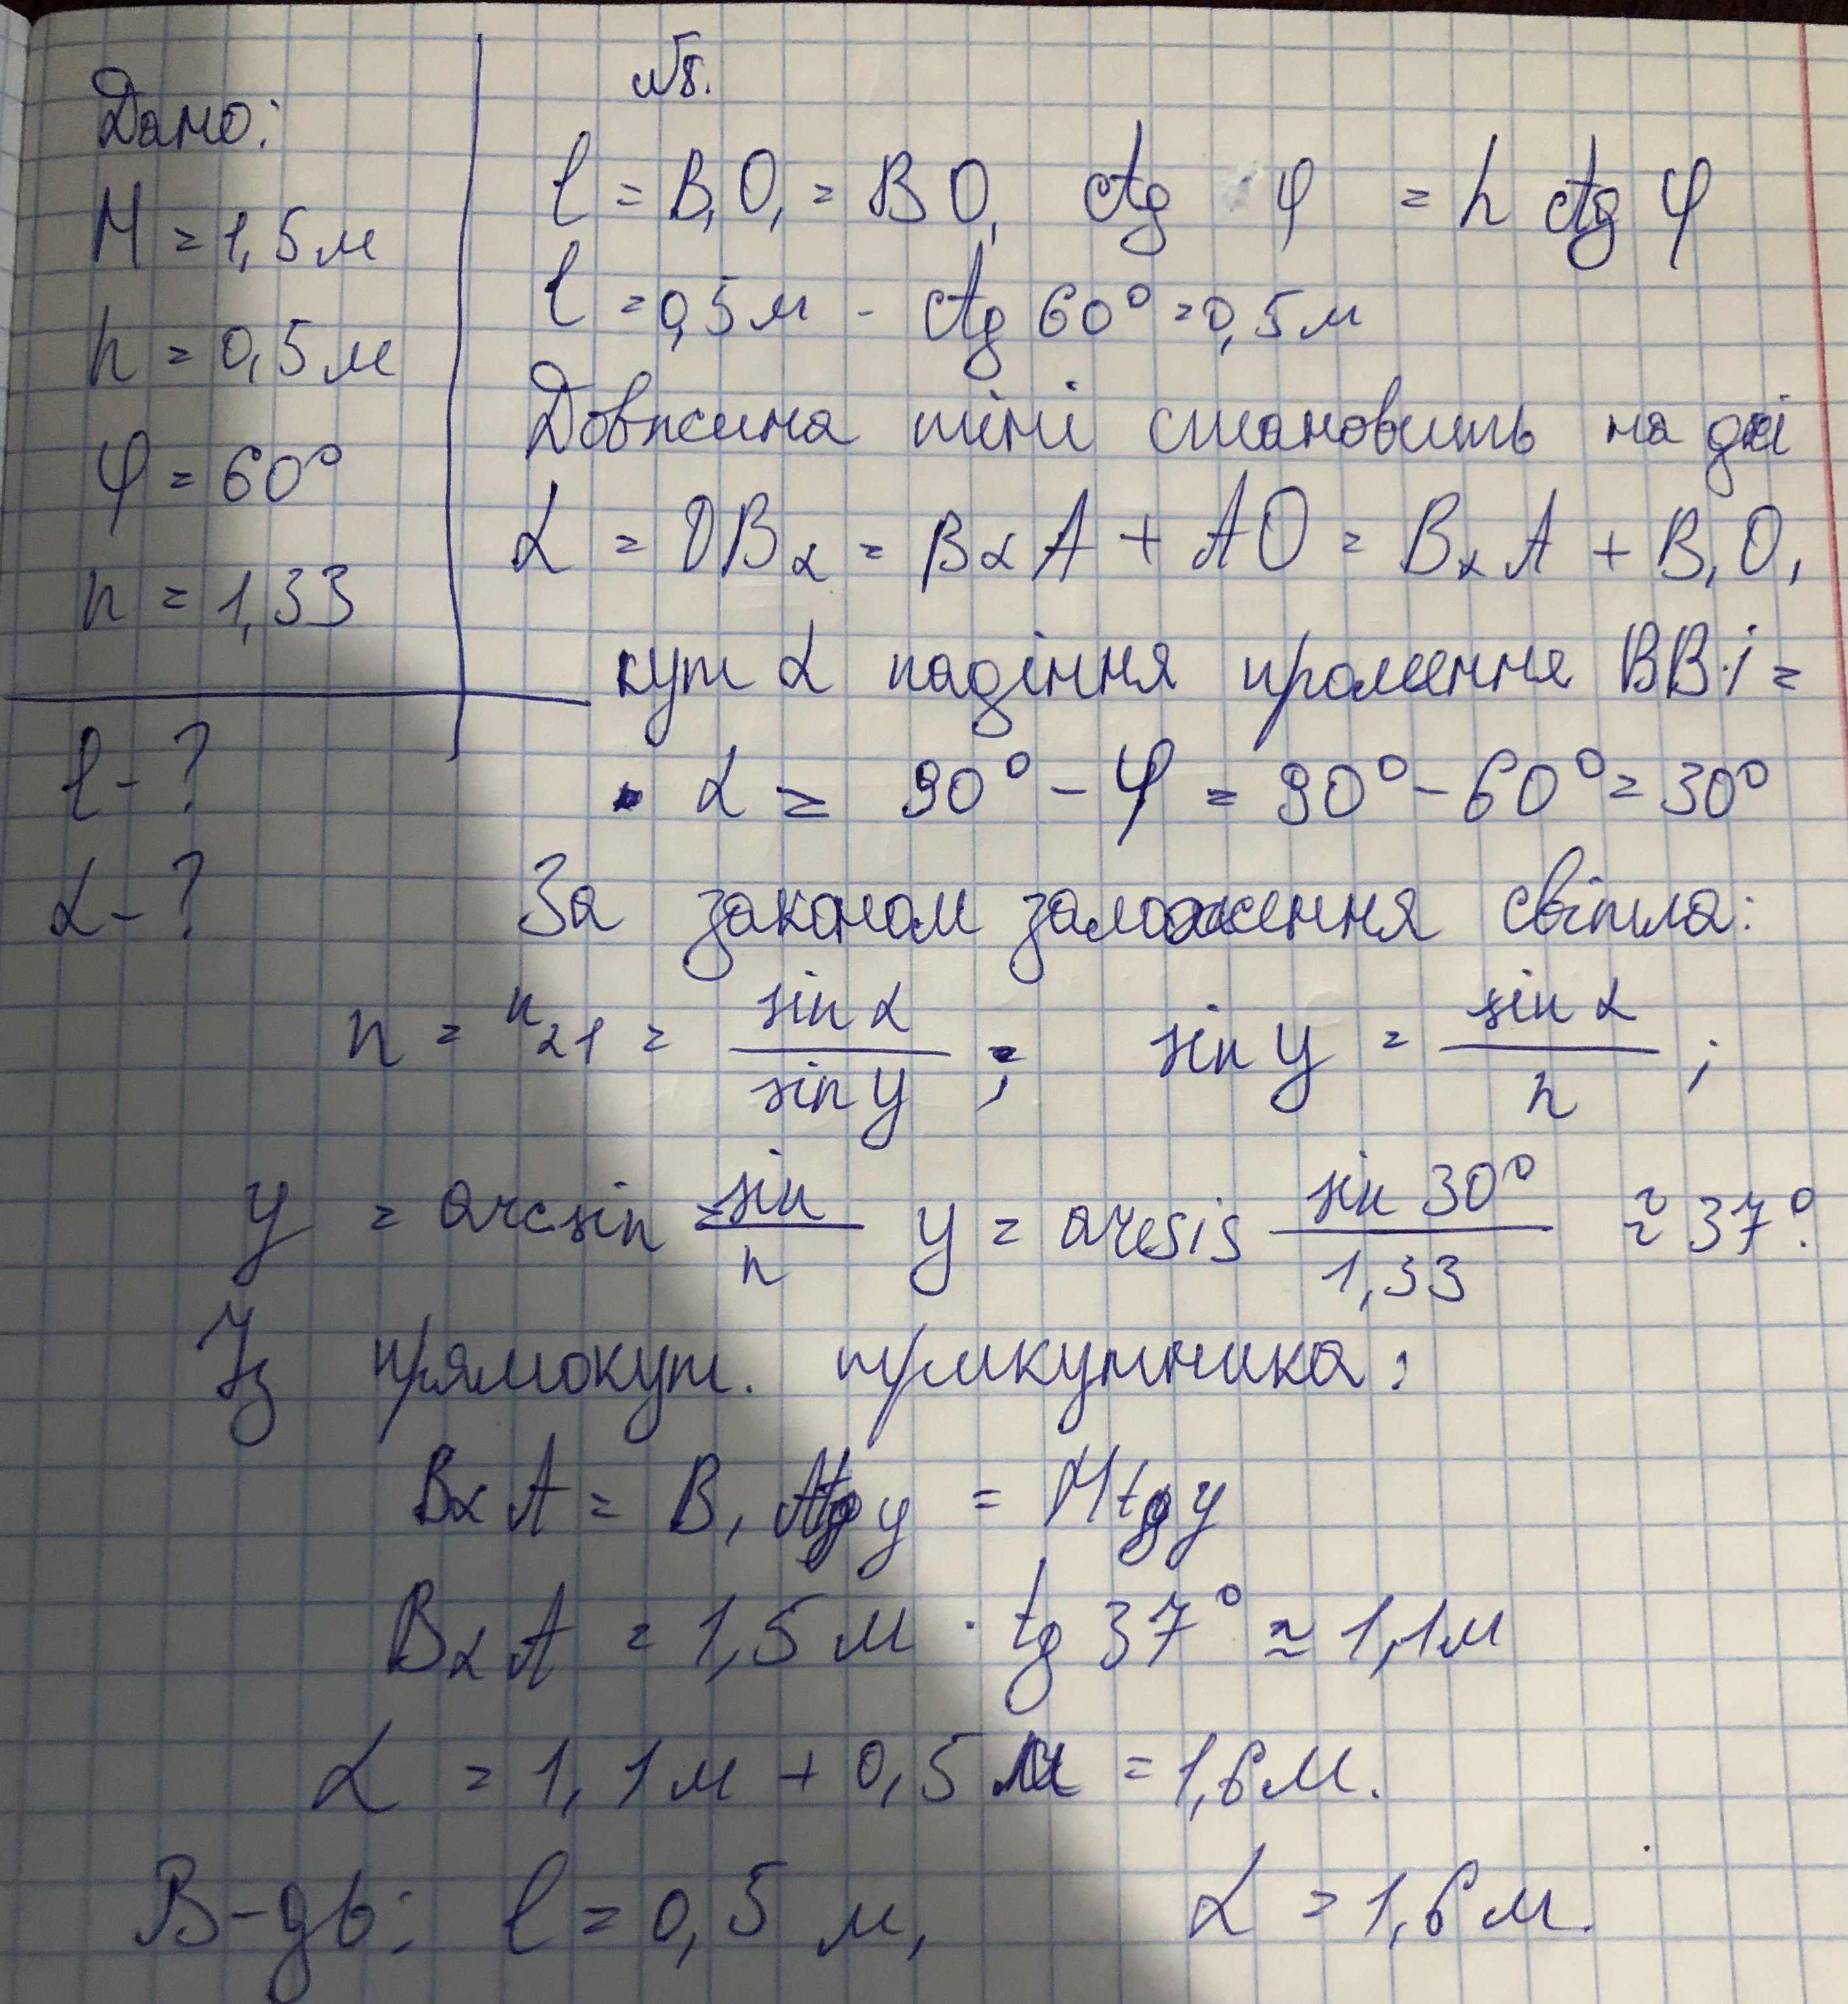 №8.
Дано:
H = 1,5 м
h = 0,5 м
φ = 60°
n = 1,33
l - ?
L - ?
l = B₁O₁ = BO₁ ctg φ = h ctg φ
l = 0,5 м - ctg 60° = 0,5 м
Довжина тіні становить на дні
L = OB₂ = B₂A + AO = B₂A + B₁O₁
кут α падіння променя BB₁ =
α = 90° - φ = 90° - 60° = 30°
За законом заломлення світла:
n = n₂₁ = sin α / sin y ; sin y = sin α / n ;
y = arcsin sin / n y = arcsis sin 30° / 1,33 ≈ 37°.
Із прямокут. трикутника:
B₂A = B₁Atg y = Htg y
B₂A = 1,5 м · tg 37° ≈ 1,1 м
L = 1,1 м + 0,5 м = 1,6 м.
В-дь: l = 0,5 м, L = 1,6 м.